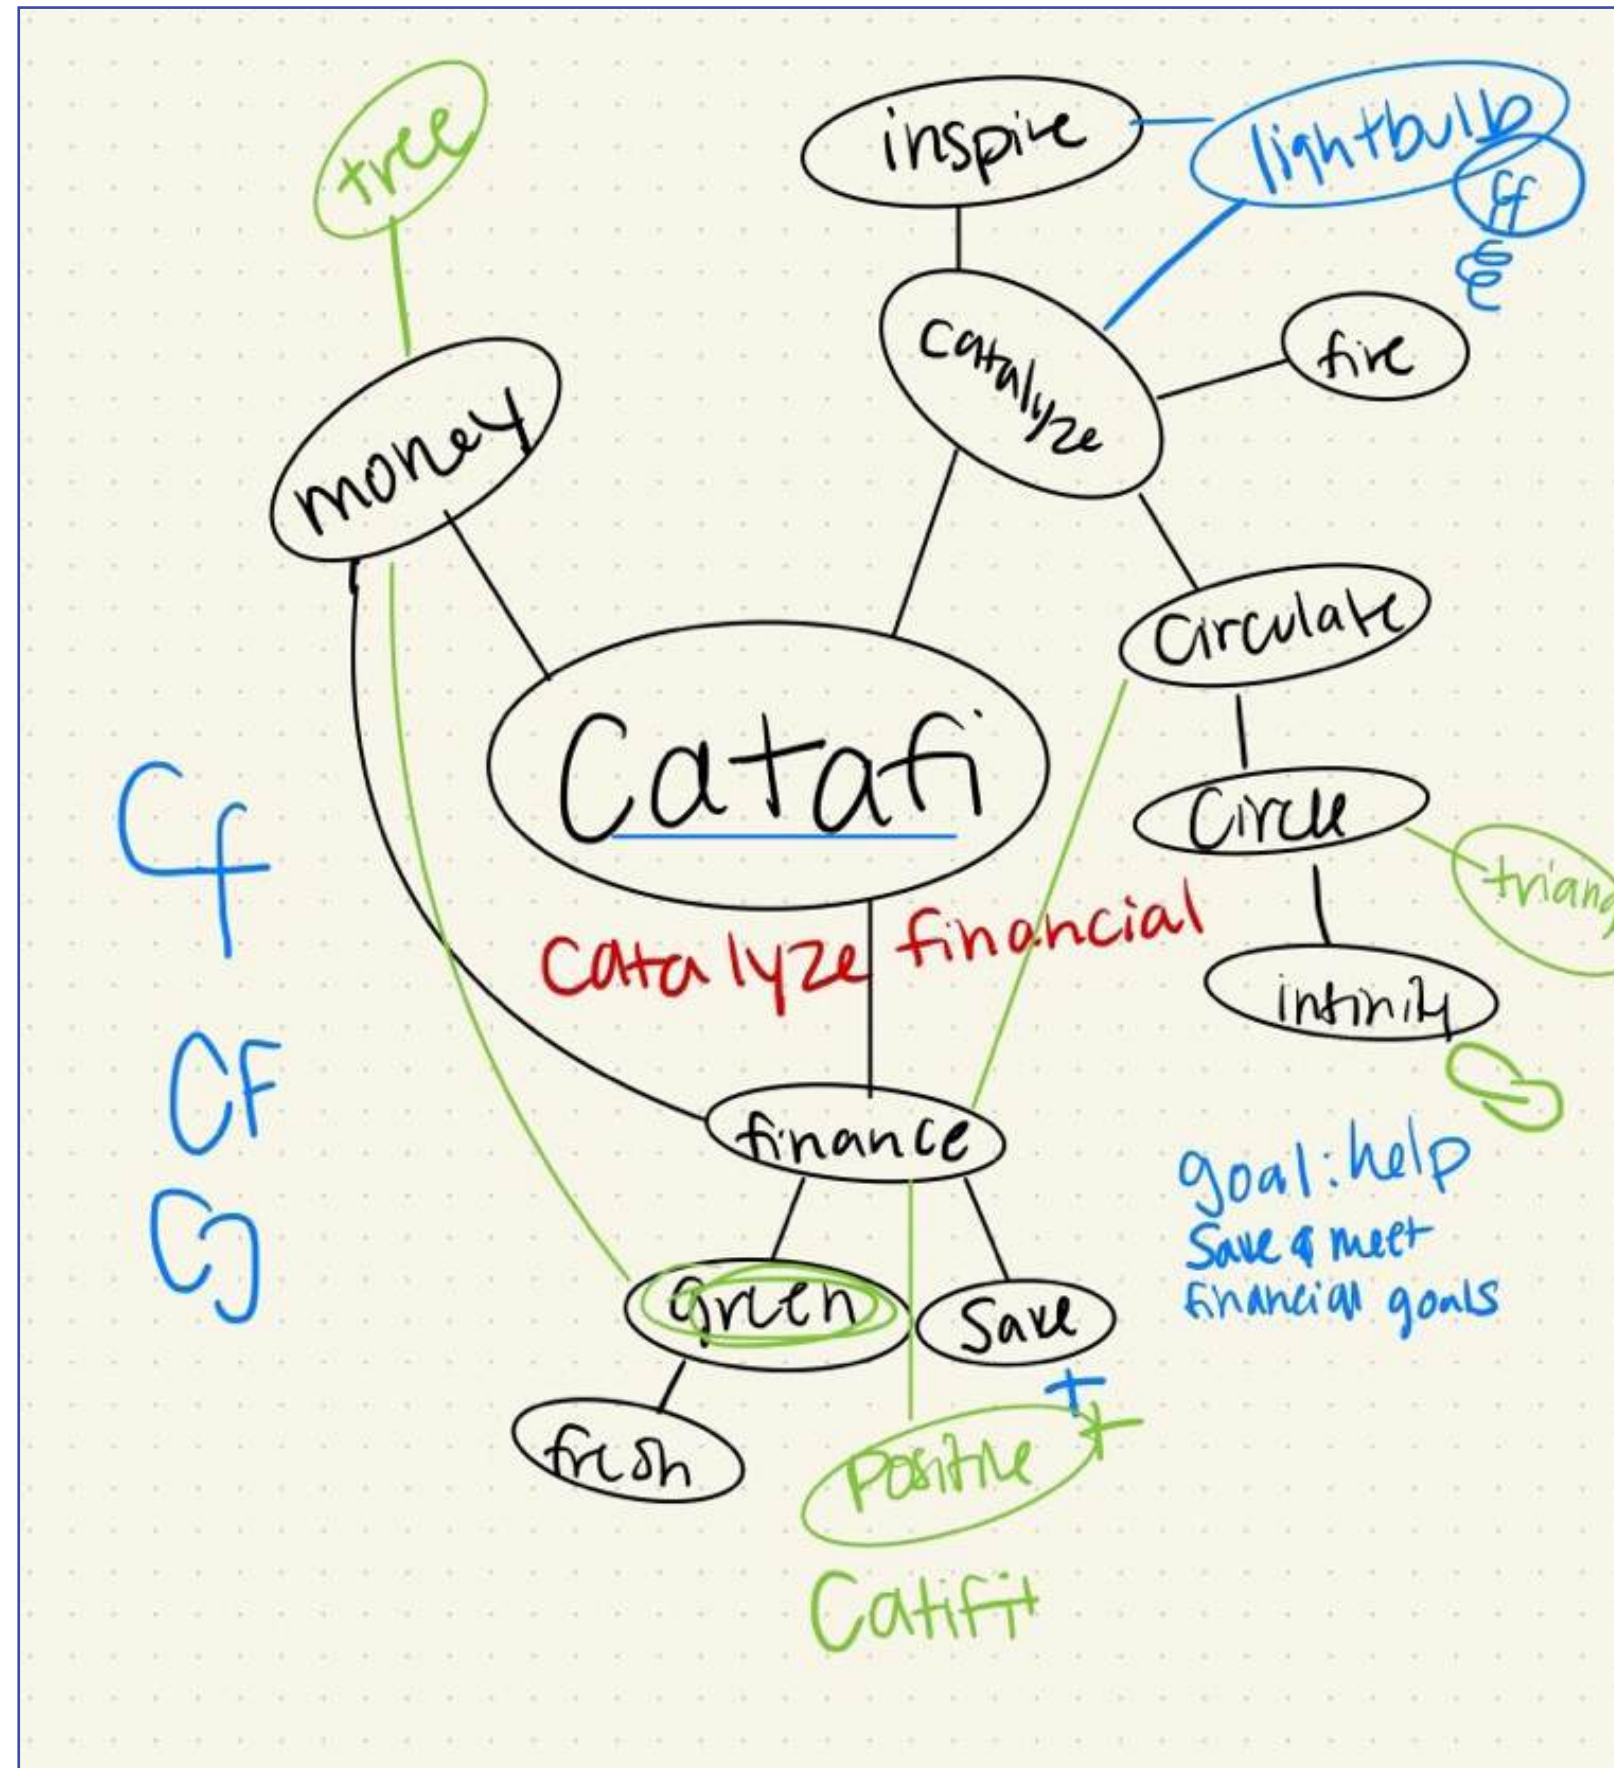 tree
inspire
lightbulb
cf
fire
catalyze
money
Circulate
Catafi
Circle
triang
Cf
catalyze financial
infinity
CF
finance
goal: help
save & meet
financial goals
green
save
+
fresh
positive +
Catifi+